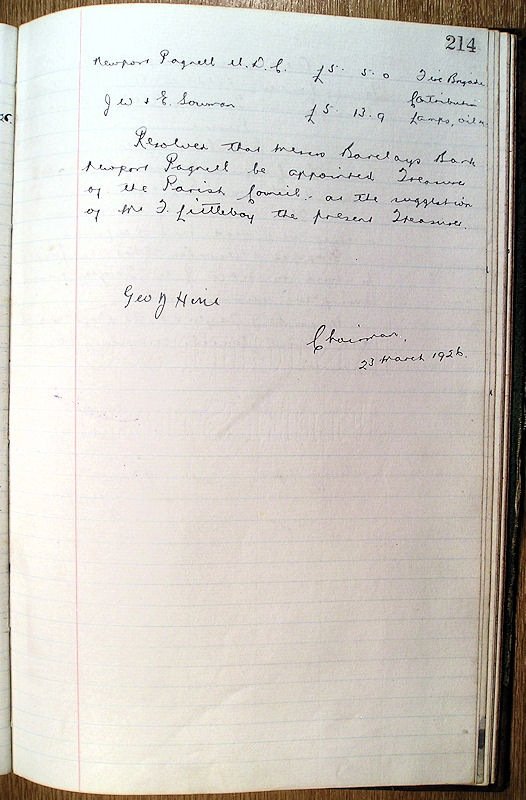 214
Newport Pagnell U.D.C. £5. 5. 0 Fire Brigade
Contribution
J W & E. Sowman £5. 13. 9 Lamps, oil &c
Resolved that Messrs Barclays Bank
Newport Pagnell be appointed Treasurer
of the Parish Council - at the suggestion
of Mr F. Littleboy the present Treasurer.
Geo J Hine
Chairman.
23 March 1926.